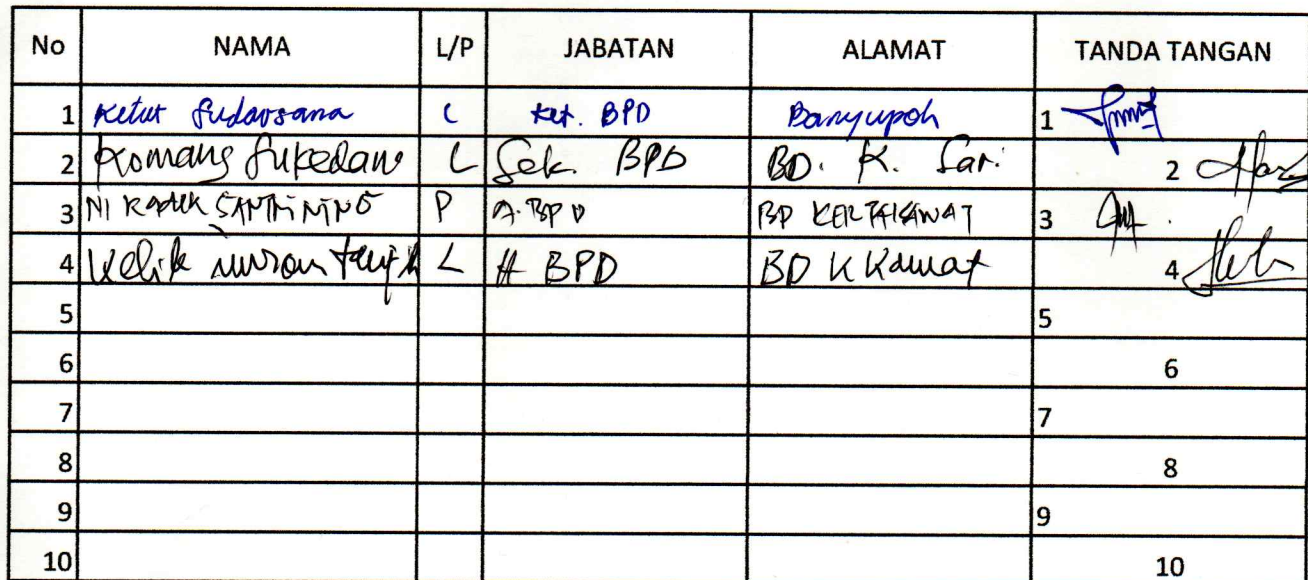 No NAMA L/P JABATAN ALAMAT TANDA TANGAN
1 Ketut Sudarsana L Ket. BPD Banyupoh 1
2 Komang Sukedana L Sek. BPD BD. K. Sari 2
3 NI KADEK P A. BPD BD KERTAKAWAT 3
4 Kelik L A BPD BD K Kawat 4
5 5
6 6
7 7
8 8
9 9
10 10